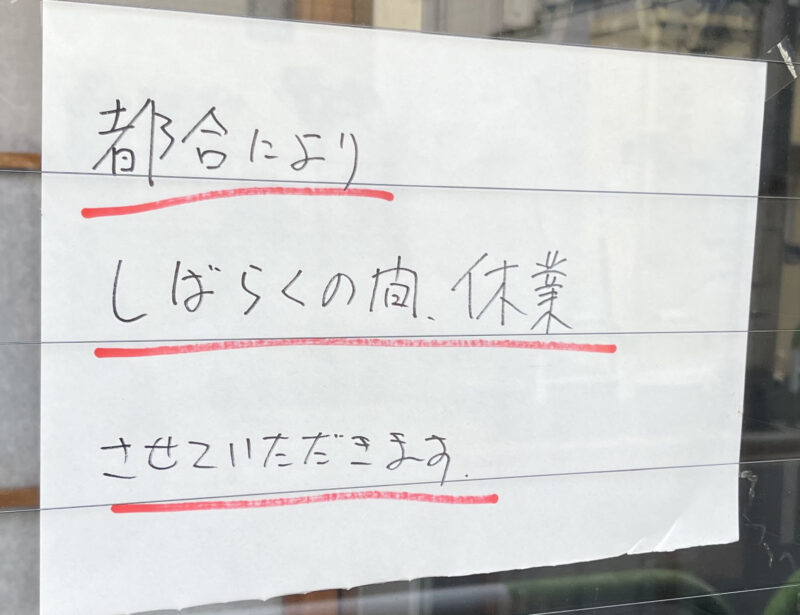 都合により
しばらくの間、休業
させていただきます.